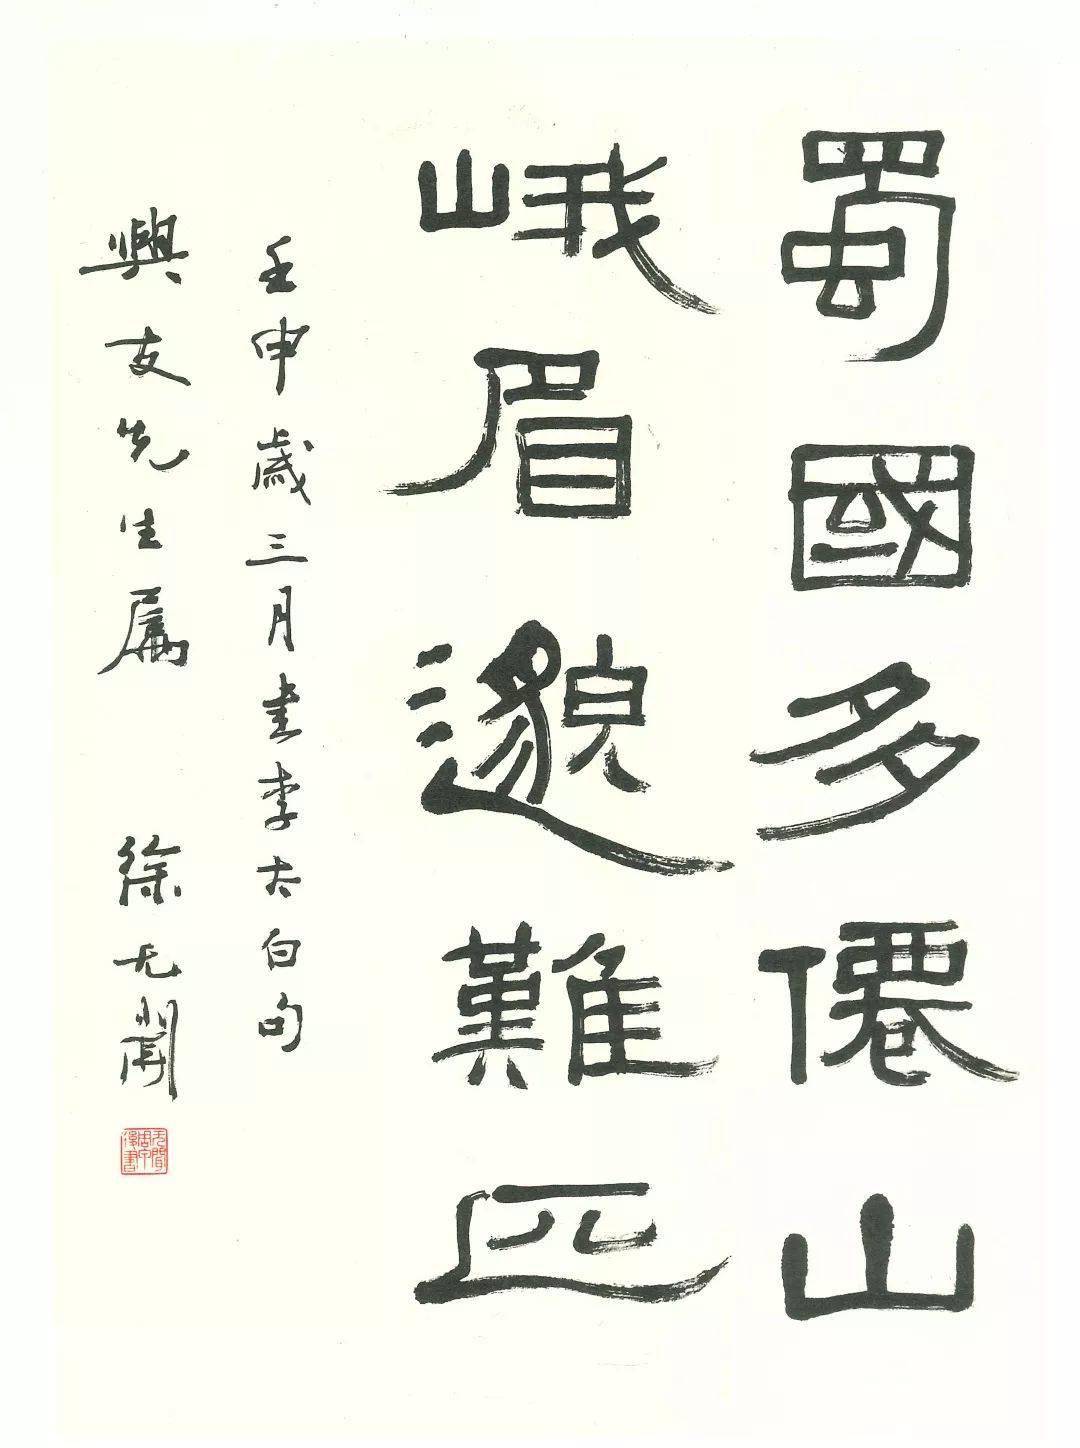 蜀國多僊山
峨眉邈難匹
壬申歲三月書李太白句
嶼友先生屬 徐无聞